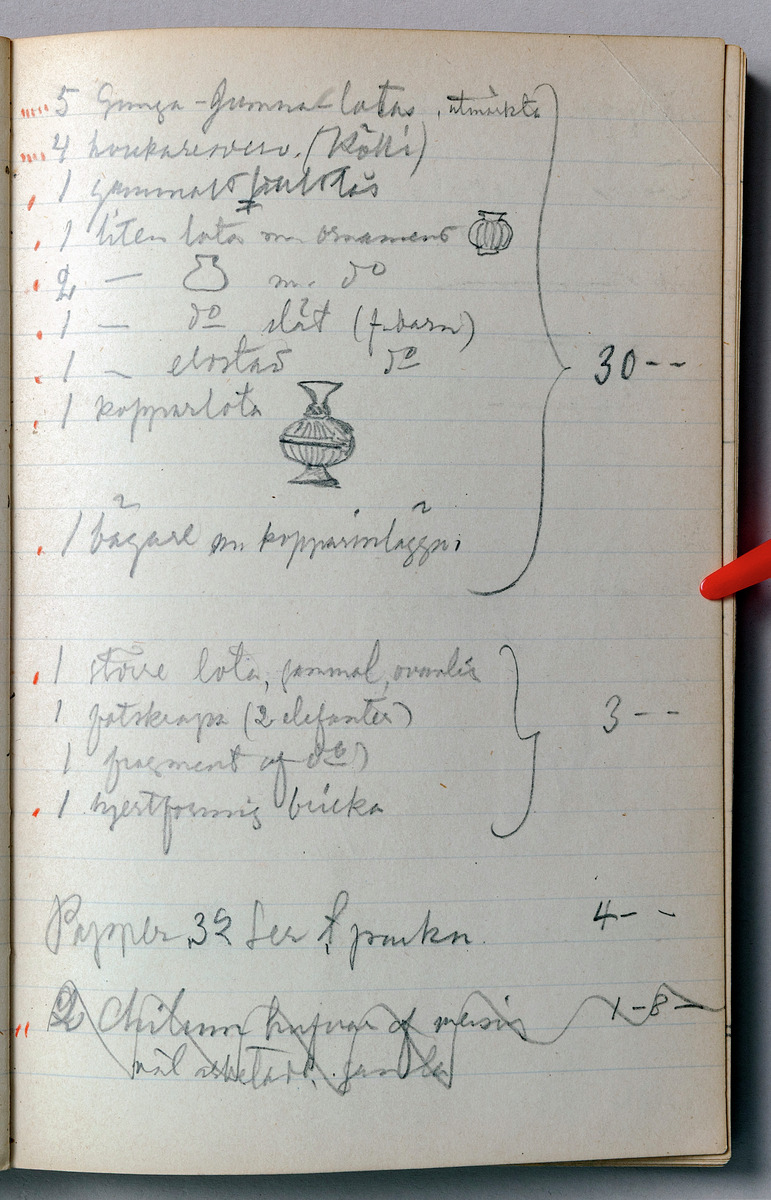 5 Gunga-Jumna-lotas, utmärkta
4 (Kökti)
1 gammal
1 liten lota m. ornament
2 — m. do
1 — do slät (f. barn)
1 — do
1 kopparlota
30--
1 bägare m. kopparinläggn.
1 större lota, gammal, ovanlig
1 fotskrapa (2 elefanter)
3--
1 fragment af do)
1 hjertformig bricka
Papper 32 Ser f packn.
4--
2 Chilum hufvar af messing
1-8-
väl arbetade, gamla